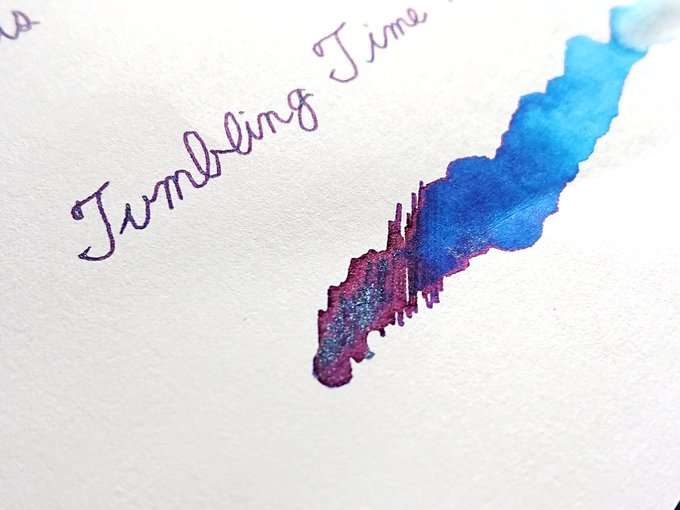 Tumbling Time